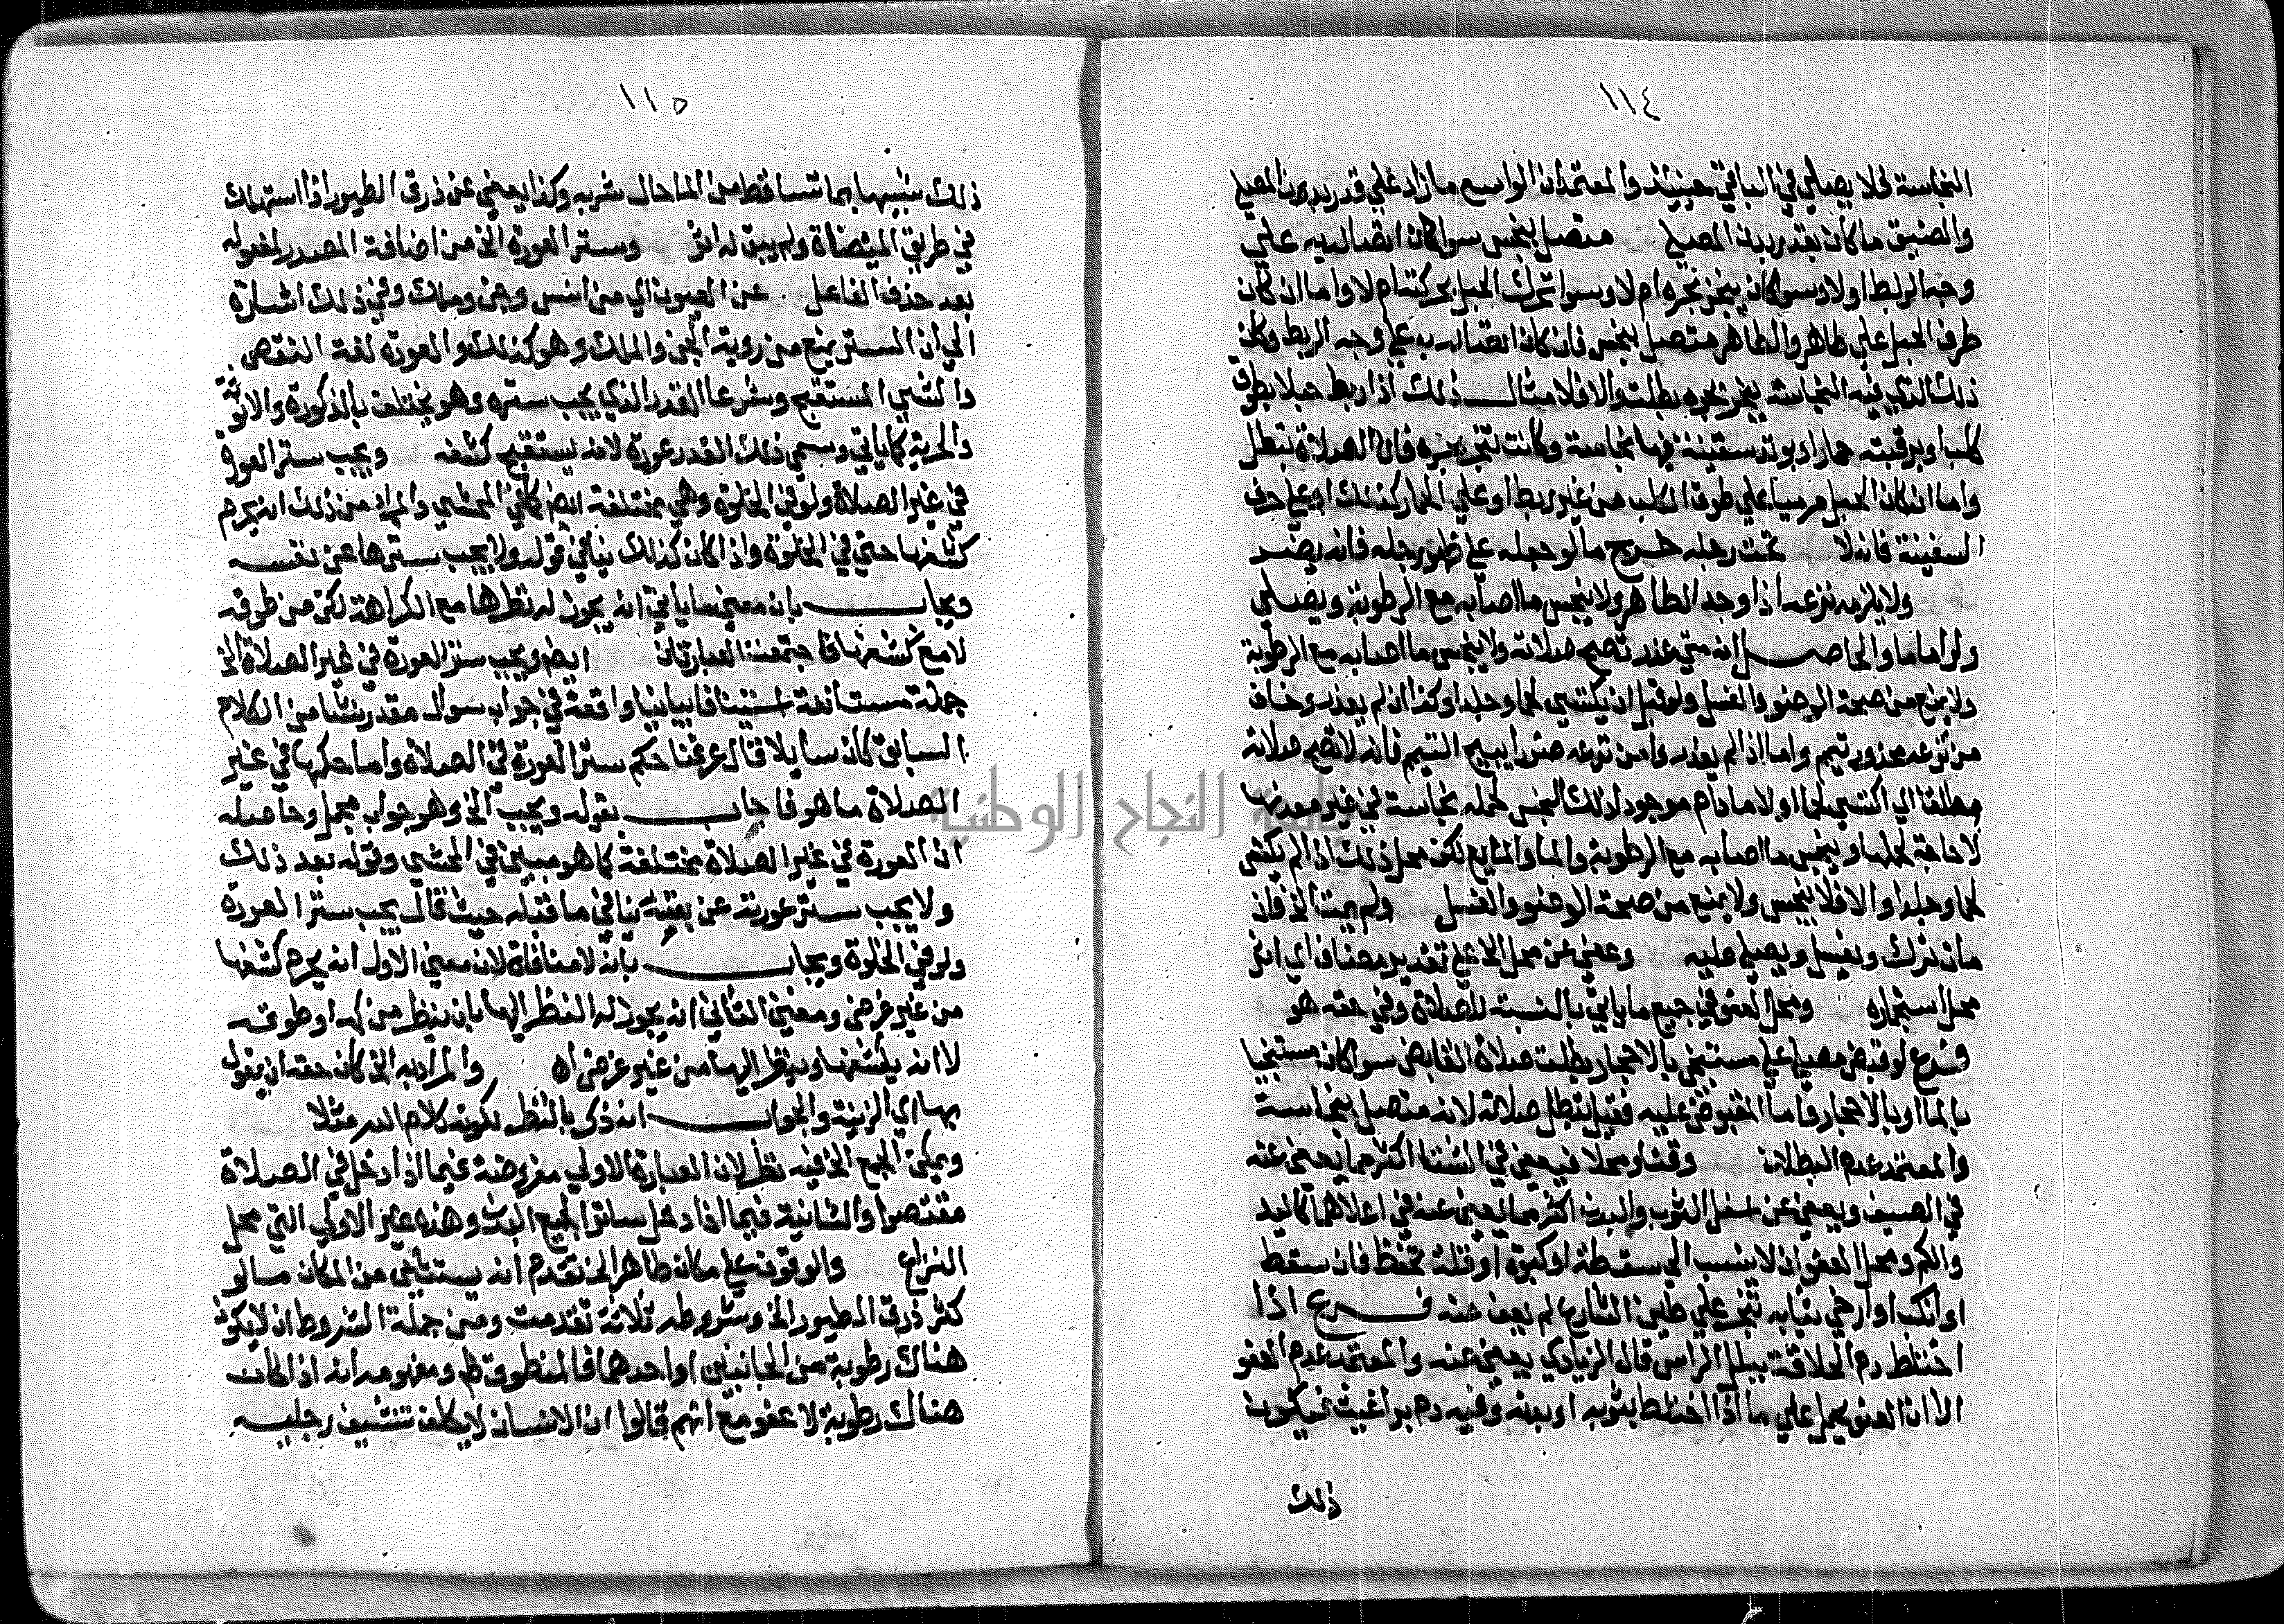 ١١٤
النجاسة لحلا يصلي في الباقي حينئذ والمعتمد ان الواسع ما زاد علي قدر بدن المصلي
والضيق ما كان بقدر بدن المصلي متصل بنجس سوا كان اتصاله به علي
وجه الربط او لا وسوا كان ينجر بجره ام لا وسوا تحرك الحبل بحركته ام لا واما ان كان
طرف الحبل علي طاهر والطاهر متصل بنجس فان كان اتصاله به علي وجه الربط وكان
ذلك الذي فيه النجاسة ينجر بجره بطلت والا فلا مثال ذلك اذا ربط حبلا بطوق
كلب او برقبة حمار او بوتد سفينة فيها نجاسة وكانت تنجر بجره فان الصلاة تبطل
واما ان كان الحبل مرميا علي طوق الكلب من غير ربط او علي الحمار كذلك او علي حرف
السفينة فانه لا تحت رجله خرج ما لو جعله علي ظهر رجله فانه يضر
ولا يلزمه نزعه اذا وجد الطاهر ولا ينجس ما اصابه مع الرطوبة ويصلي
ولو اماما والحاصل انه متي عذر تصح صلاته ولا ينجس ما اصابه مع الرطوبة
ولا يمنع من صحة الوضو والغسل ولو قبل ان يكتسي لحما وجلدا وكذا ان لم يعذر وخاف
من نزعه محذور تيمم واما اذا لم يعذر وامن من نزعه ضررا يبيح التيمم فانه لا تصح صلاته
مطلقا اي اكتسي لحما او لا ما دام موجود لذلك النجس لحمله نجاسة في غير معدنها
لا حاجة لحملها وينجس ما اصابه مع الرطوبة والما والمايع لكن محل ذلك اذا لم يكتس
لحما وجلدا والا فلا ينجس ولا يمنع من صحة الوضو والغسل ولم يمت الخ فان
مات ترك ويغسل ويصلي عليه وعفي عن محل الخ علي تقدير مضاف اي اثر
محل استجماره ومحل العفو في جميع ما ياتي بالنسبة للصلاة وفي حقه هو
فرع لو قبض مصليا علي مستنجي بالاحجار بطلت صلاة القابض سوا كان مستنجيا
بالما او بالاحجار واما المقبوض عليه فقيل تبطل صلاته لانه متصل بنجاسة
والمعتمد عدم البطلان وقتا ومحلا فيعفي في الشتا اكثر مما يعفي عنه
في الصيف ويعفي عن اسفل الثوب والبدن اكثر مما يعفي عنه في اعلاهما كاليد
والكم ومحل العفو ان لا ينسب الي سقطة او كبوة او قلة تحفظ فان سقط
او انكب او ارخي ثيابه تنجر علي طين الشارع لم يعف عنه فرع اذا
اختلط دم الحلاقة ببلل الراس قال الزيادي يعفي عنه والمعتمد عدم العفو
الا ان العفو يحمل علي ما اذا اختلط بثوبه او بدنه وفيه دم براغيث فيكون
ذلك
١١٥
ذلك شبيها بما تساقط من الما حال شربه وكذا يعفي عن ذرق الطيور اذا استهلك
في طريق الميضاة ولم يبق له اثر وستر العورة الخ من اضافة المصدر لمفعوله
بعد حذف الفاعل عن العيون اي من انس وجن وملك وفي ذلك اشارة
الي ان الستر يمنع من روية الجن والملك وهو كذلك والعورة لغة النقص
والشي المستقبح وشرعا القدر الذي يجب ستره وهو يختلف بالذكورة والانوثة
والحرية كما ياتي وسمي ذلك القدر عورة لانه يستقبح كشفه ويجب ستر العورة
في غير الصلاة ولو في الخلوة وهي مختلفة ايضا كما في المحشي والمراد من ذلك انه يحرم
كشفها حتي في الخلوة واذا كان كذلك ينافي قوله ولا يجب سترها عن نفسه
ويجاب بان معني ما ياتي انه يجوز له نظرها مع الكراهة لكن من طوقه
لا مع كشفها فاجتمعت العبارتان ايضا ويجب ستر العورة في غير الصلاة الخ
جملة مستانفة استينافا بيانيا واقعة في جواب سوال مقدر نشا من الكلام
السابق كان سايلا قال عرفنا حكم ستر العورة في الصلاة واما حكمها في غير
الصلاة ما هو فاجاب بقوله ويجب الخ وهو جواب مجمل وحاصله
ان العورة في غير الصلاة مختلفة كما هو مبين في المحشي وقوله بعد ذلك
ولا يجب ستر عورته عن نفسه ينافي ما قبله حيث قال يجب ستر العورة
ولو في الخلوة ويجاب بانه لا منافاة لان معني الاول انه يحرم كشفها
من غير غرض ومعني الثاني انه يجوز له النظر اليها بان ينظر من كمه او طوقه
لا انه يكشفها وينظر اليها من غير غرض اه والمراد به الخ كان حقه ان يقول
بها اي الزينة والجواب انه ذكر بالنظر لكونه كلام الله مثلا
ويمكن الجمع الخ فيه نظر لان العبارة الاولي مفروضة فيما اذا دخل في الصلاة
مقتصرا والثانية فيما اذا دخل ساترا لجميع البدن وهذه غير الاولي التي محل
النزاع والوقوف علي مكان طاهر الخ تقدم انه يستثني من المكان ما لو
كثر ذرق الطيور الخ وشروطه ثلاثة تقدمت ومن جملة الشروط ان لا يكون
هناك رطوبة من الجانبين او احدهما فالمنطوق ظ ومفهومه انه اذا كان
هناك رطوبة لا عفو مع انهم قالوا ان الانسان لا يكلف تنشيف رجليه
جامعة النجاح الوطنية